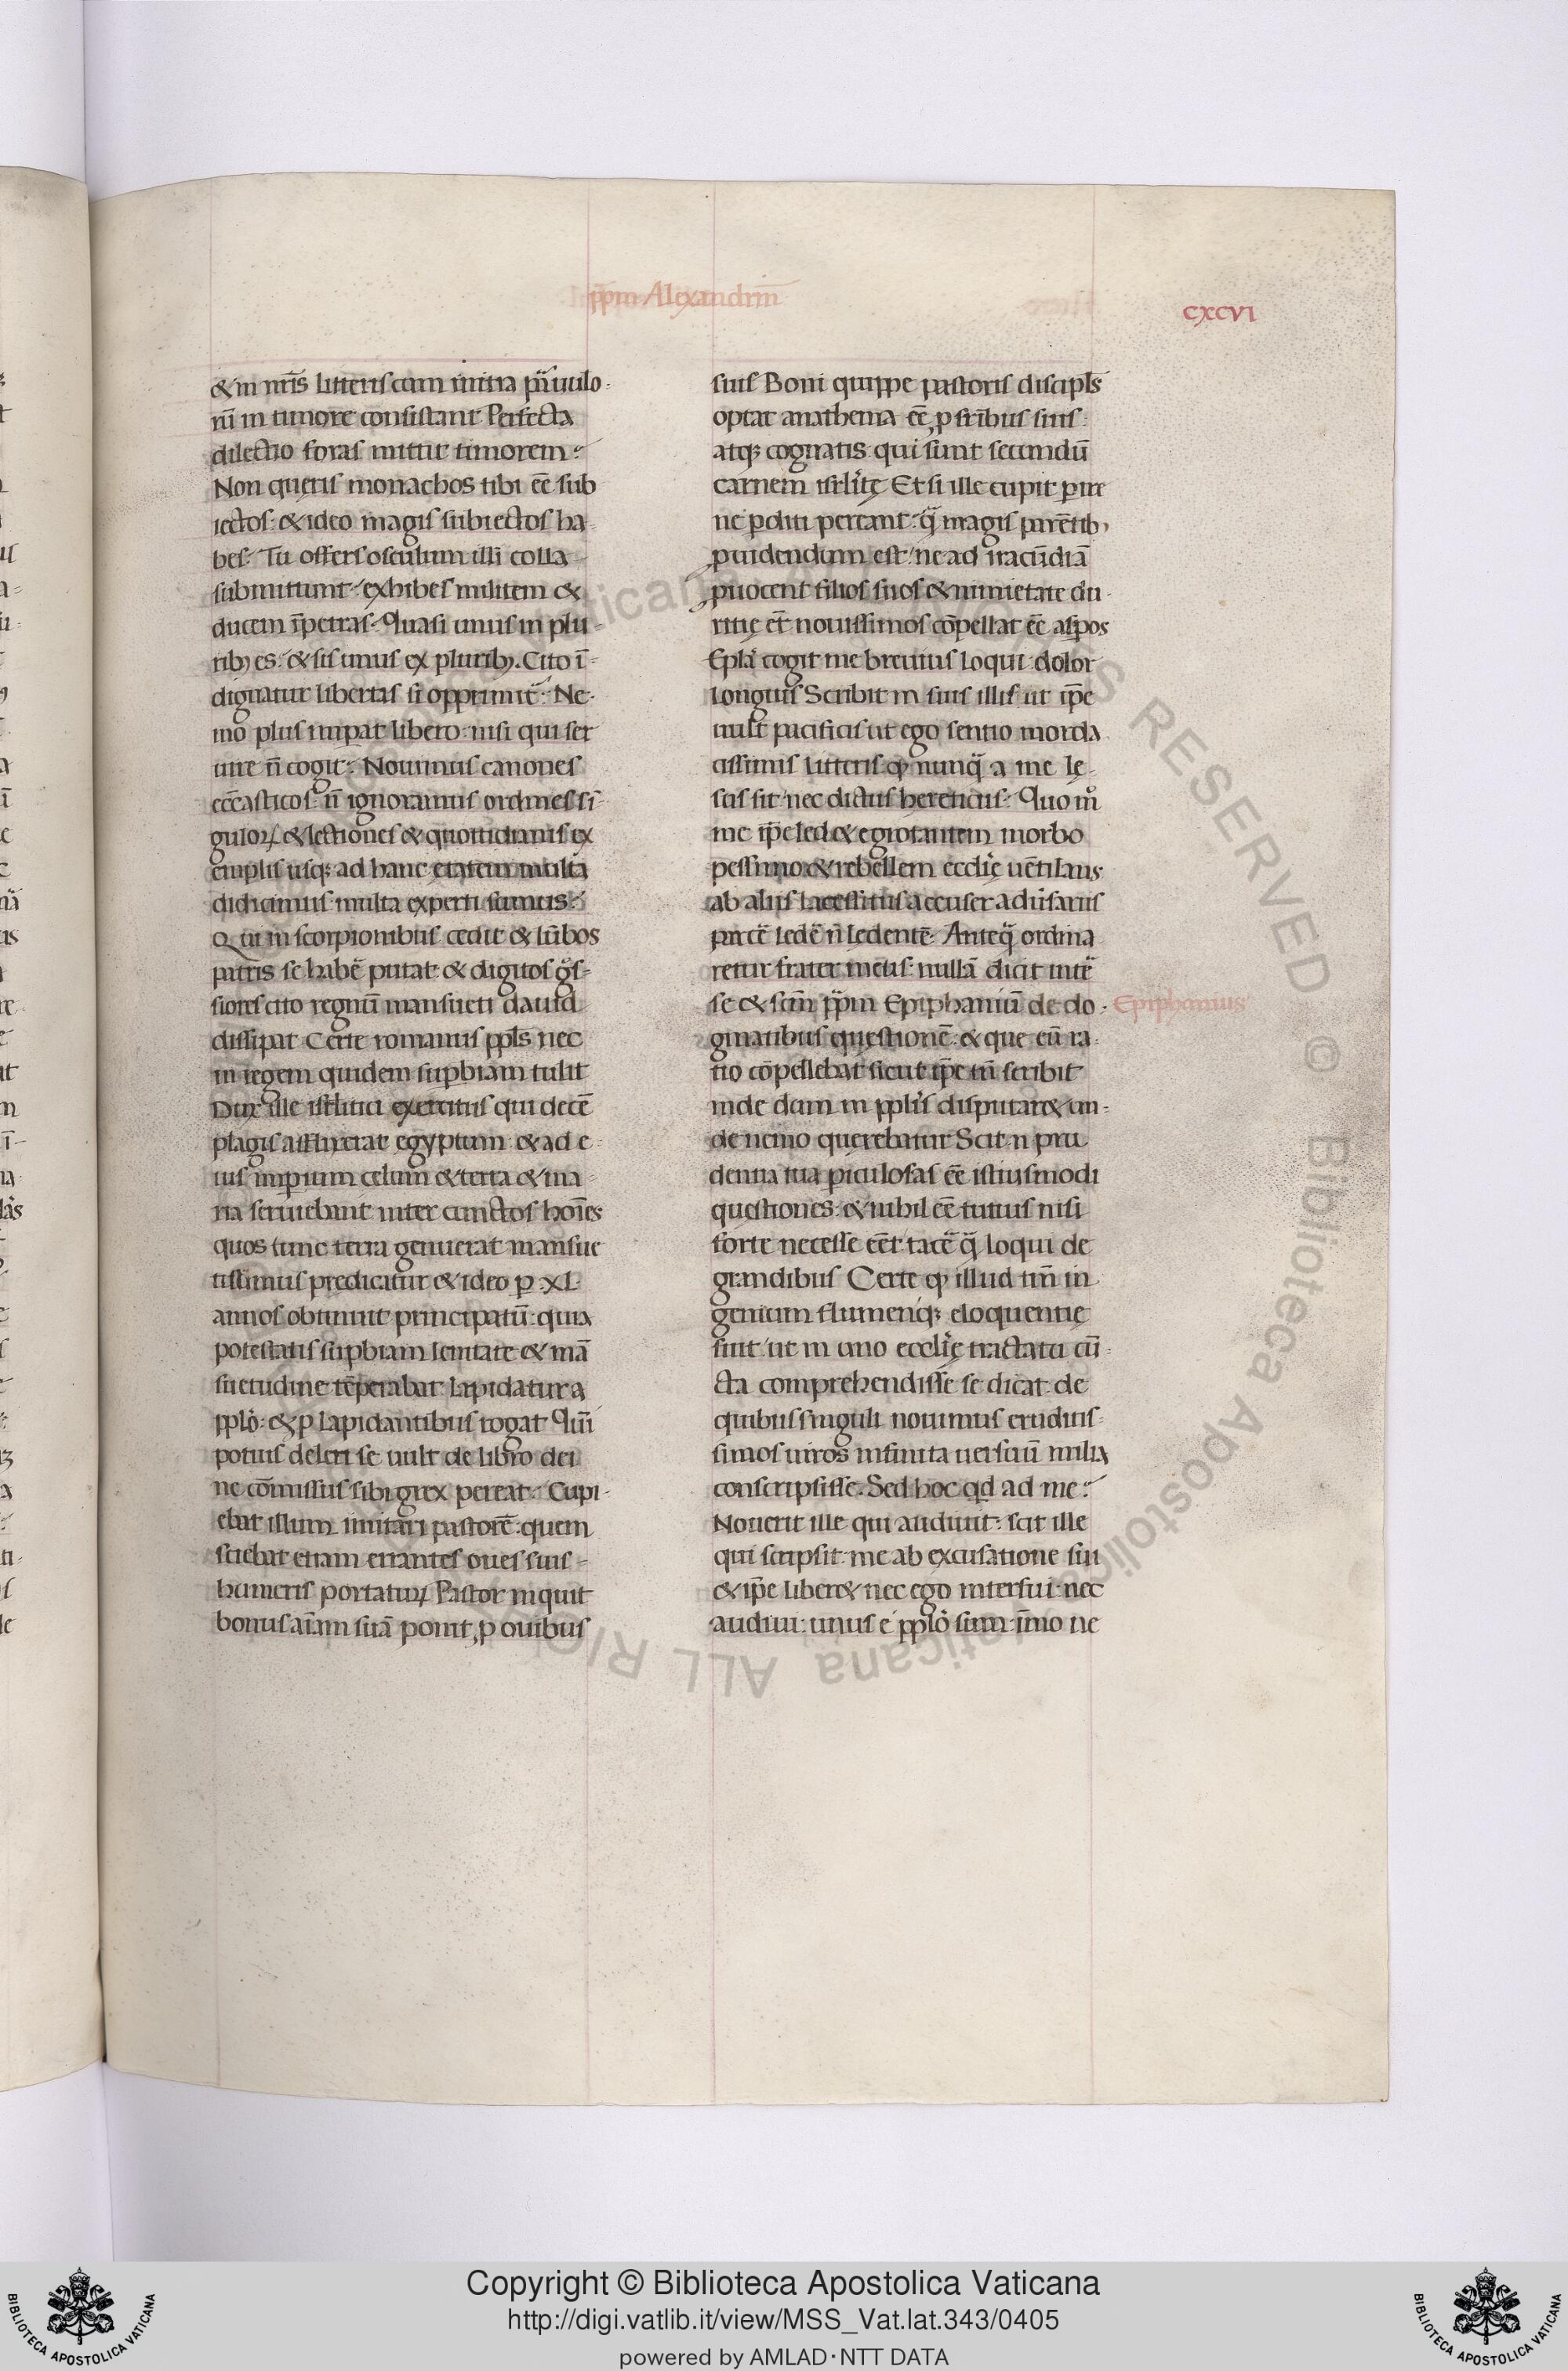 ppm Alexandrin̄
cxcvi
& in nr̄is litteris cum initia paruulo-
rū in timore consistant Perfecta
dilectio foras mittit timorem:
Non queris monachos tibi eē sub
iectos: & ideo magis subiectos ha-
bes: Tu offers osculum illi colla
submittunt: exhibes militem &
ducem īpetras: Quasi unus in plu-
ribꝫ es: & sis unus ex pluribꝫ. Cito ī-
dignatur libertas si opprimit̄: Ne-
mo plus impat libero: nisi qui ser
uire n̄ cogit: Nouimus canones
ecc̄asticos: n̄ ignoramus ordines sī-
gulorꝝ & lectiones & quottidianis ex
emplis usqꝫ ad hanc etatem multa
didicimus: multa experti sumus:
Qui in scorpionibus cedit & lūbos
patris se habē putat & digitos gs̄-
siores cito regnū mansueti dauid
dissipat Certe romanus ppl̄s nec
in regem quidem supbiam tulit
Dux ille isrl̄itici exercitus qui decē
plagis afflixerat egyptum: & ad e-
ius impium celum & terra & ma-
ria seruiebant inter cunctos hoīes
quos tunc terra genuerat mansue
tissimus predicatur & ideo ꝑ .XL.
annos obtinuit principatū: quia
potestatis supbiam lenitate & mā
suetudine tēperabat Lapidatur a
pplo: & ꝓ lapidantibus rogat Quī
potius deleri se uult de libro dei
ne cōmissus sibi grex pereat: Cupi-
ebat illum imitari pastorē: quem
sciebat etiam errantes oues suis
humeris portaturꝝ Pastor inquit
bonus aīam suā ponit ꝓ ouibus
suis Boni quippe pastoris discipls̄
optat anathema eē ꝓ fr̄ibus suis
atqꝫ cognatis: qui sunt secundū
carnem isrl̄itę Et si ille cupit ꝑire
ne ꝑditi pereant: q̄ magis parētibꝫ
ꝓuidendum est: ne ad iracūdiā
ꝓuocent filios suos & nimietate du-
ritię et̄ nouissimos cōpellat eē aspos
Epl̄a cogit me breuius loqui: dolor
longius Scribit in suis illis: ut ip̄e
uult pacificis ut ego sentio morda
cissimis litteris: ꝙ nunq̄ a me le-
sus sit: nec dictus hereticus: Quo mo
me ip̄e led& egrotantem morbo
pessimo & rebellem ecclię uētilans
ab aliis lacessitus accuser aduīsariis
parcē ledē n̄ ledentē: Anteq̄ ordina
retur frater meus: nullā dicit intē
se & scm̄ ppm Epiphaniū de do-
Epiphanius
gmatibus questionē: & que eū ra-
tio cōpellebat sicut ip̄e tn̄ scribit
inde dum in ppl̄is disputar& un-
de nemo querebatur Scit n̄ pru
dentia tua piculosas eē istiusmodi
questiones: & nihil eē tutius nisi
forte necesse eēt tacē q̄ loqui de
grandibus Certe ꝙ illud tm̄ in
genium flumenqꝫ eloquentię
fuit: ut in uno ecclię tractatu cū-
cta comprehendisse se dicat: de
quibus singuli nouimus eruditis-
simos uiros infinita uersuū milia
conscripsisse. Sed hoc qd ad me:
Nouerit ille qui audiuit: scit ille
qui scripsit: me ab excusatione sui
& ip̄e liber& nec ego interfui: nec
audiui: unus e pplo sum: īmo ne
Copyright © Biblioteca Apostolica Vaticana
http://digi.vatlib.it/view/MSS_Vat.lat.343/0405
powered by AMLAD·NTT DATA